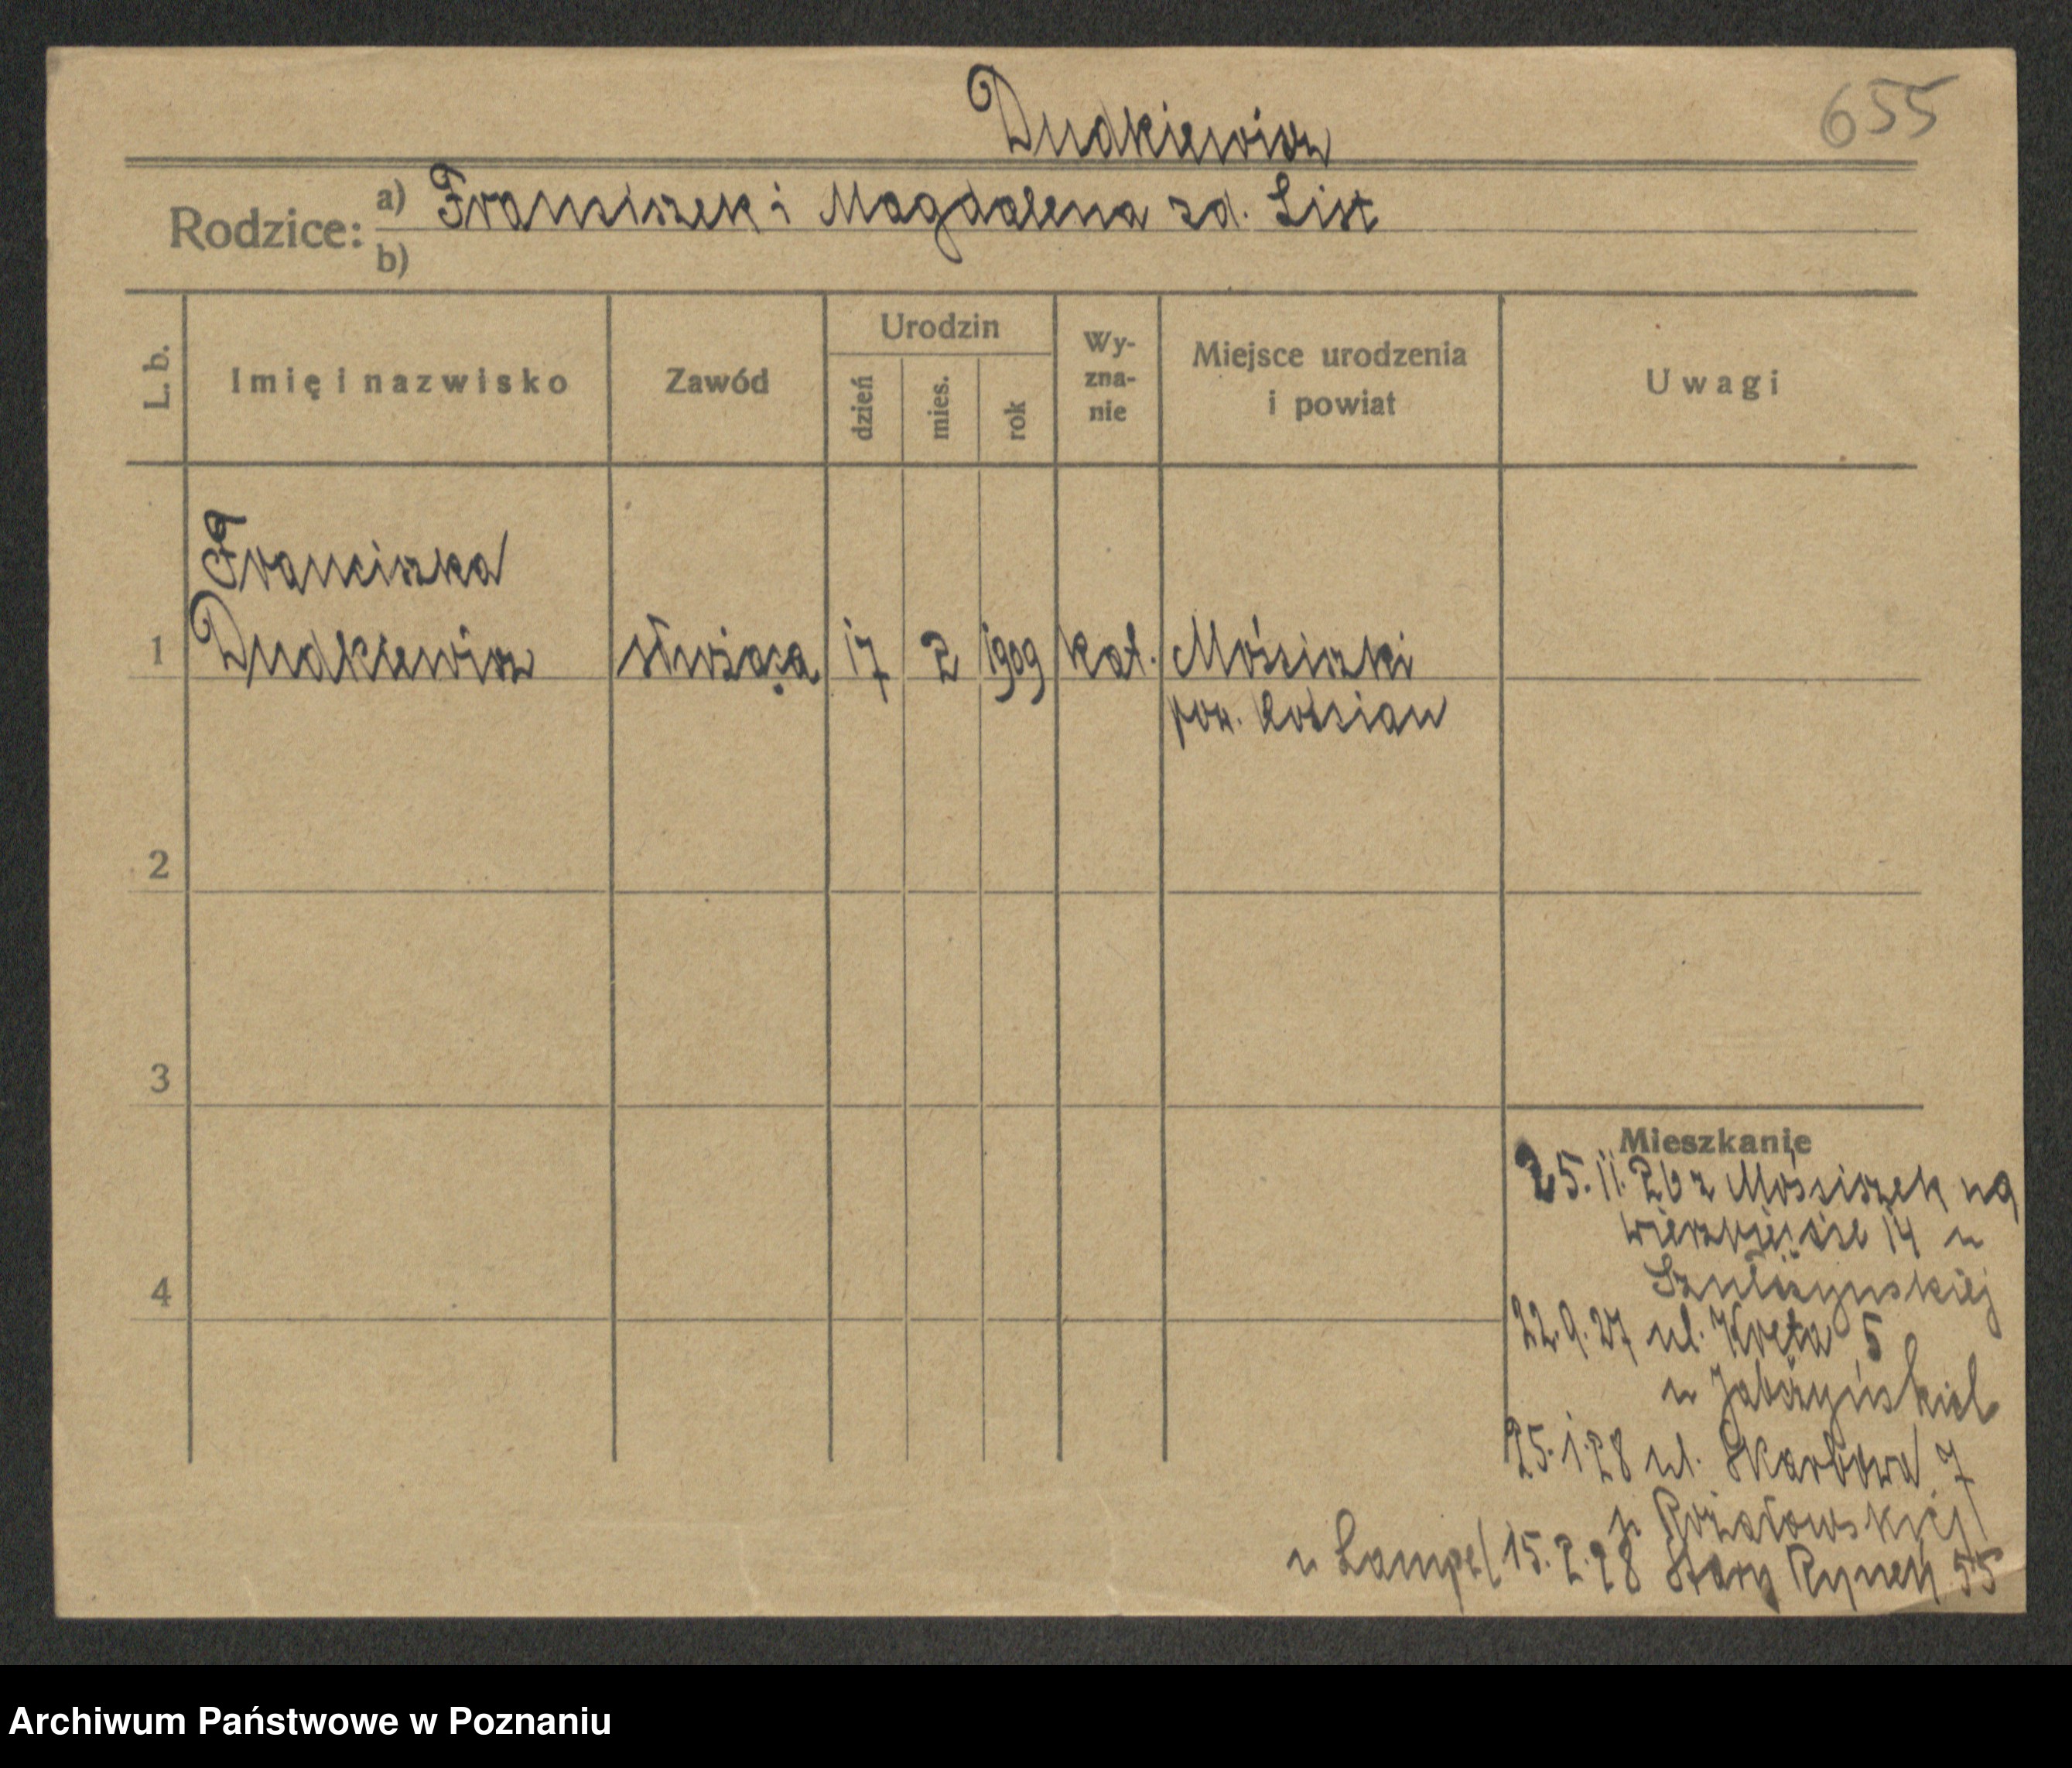 655
Dudkiewicz
Rodzice: a) Franciszek i Magdalena zd. List
b)
L. b.
Imię i nazwisko
Zawód
Urodzin
dzień
mies.
rok
Wy-
zna-
nie
Miejsce urodzenia
i powiat
Uwagi
Franciszka
1 Dudkiewicz służąca 17 2 1909 kat. Mościszki
pow. Kościan
2
3
4
Mieszkanie
25.11.26 z Mościszek na
Wierzbięcice 14 u
22.9.27 ul. Kręta 5
u
25.1.28 ul. Skarbowa 7
u
u Lampel 15.2.28 Stary Rynek 55
Archiwum Państwowe w Poznaniu